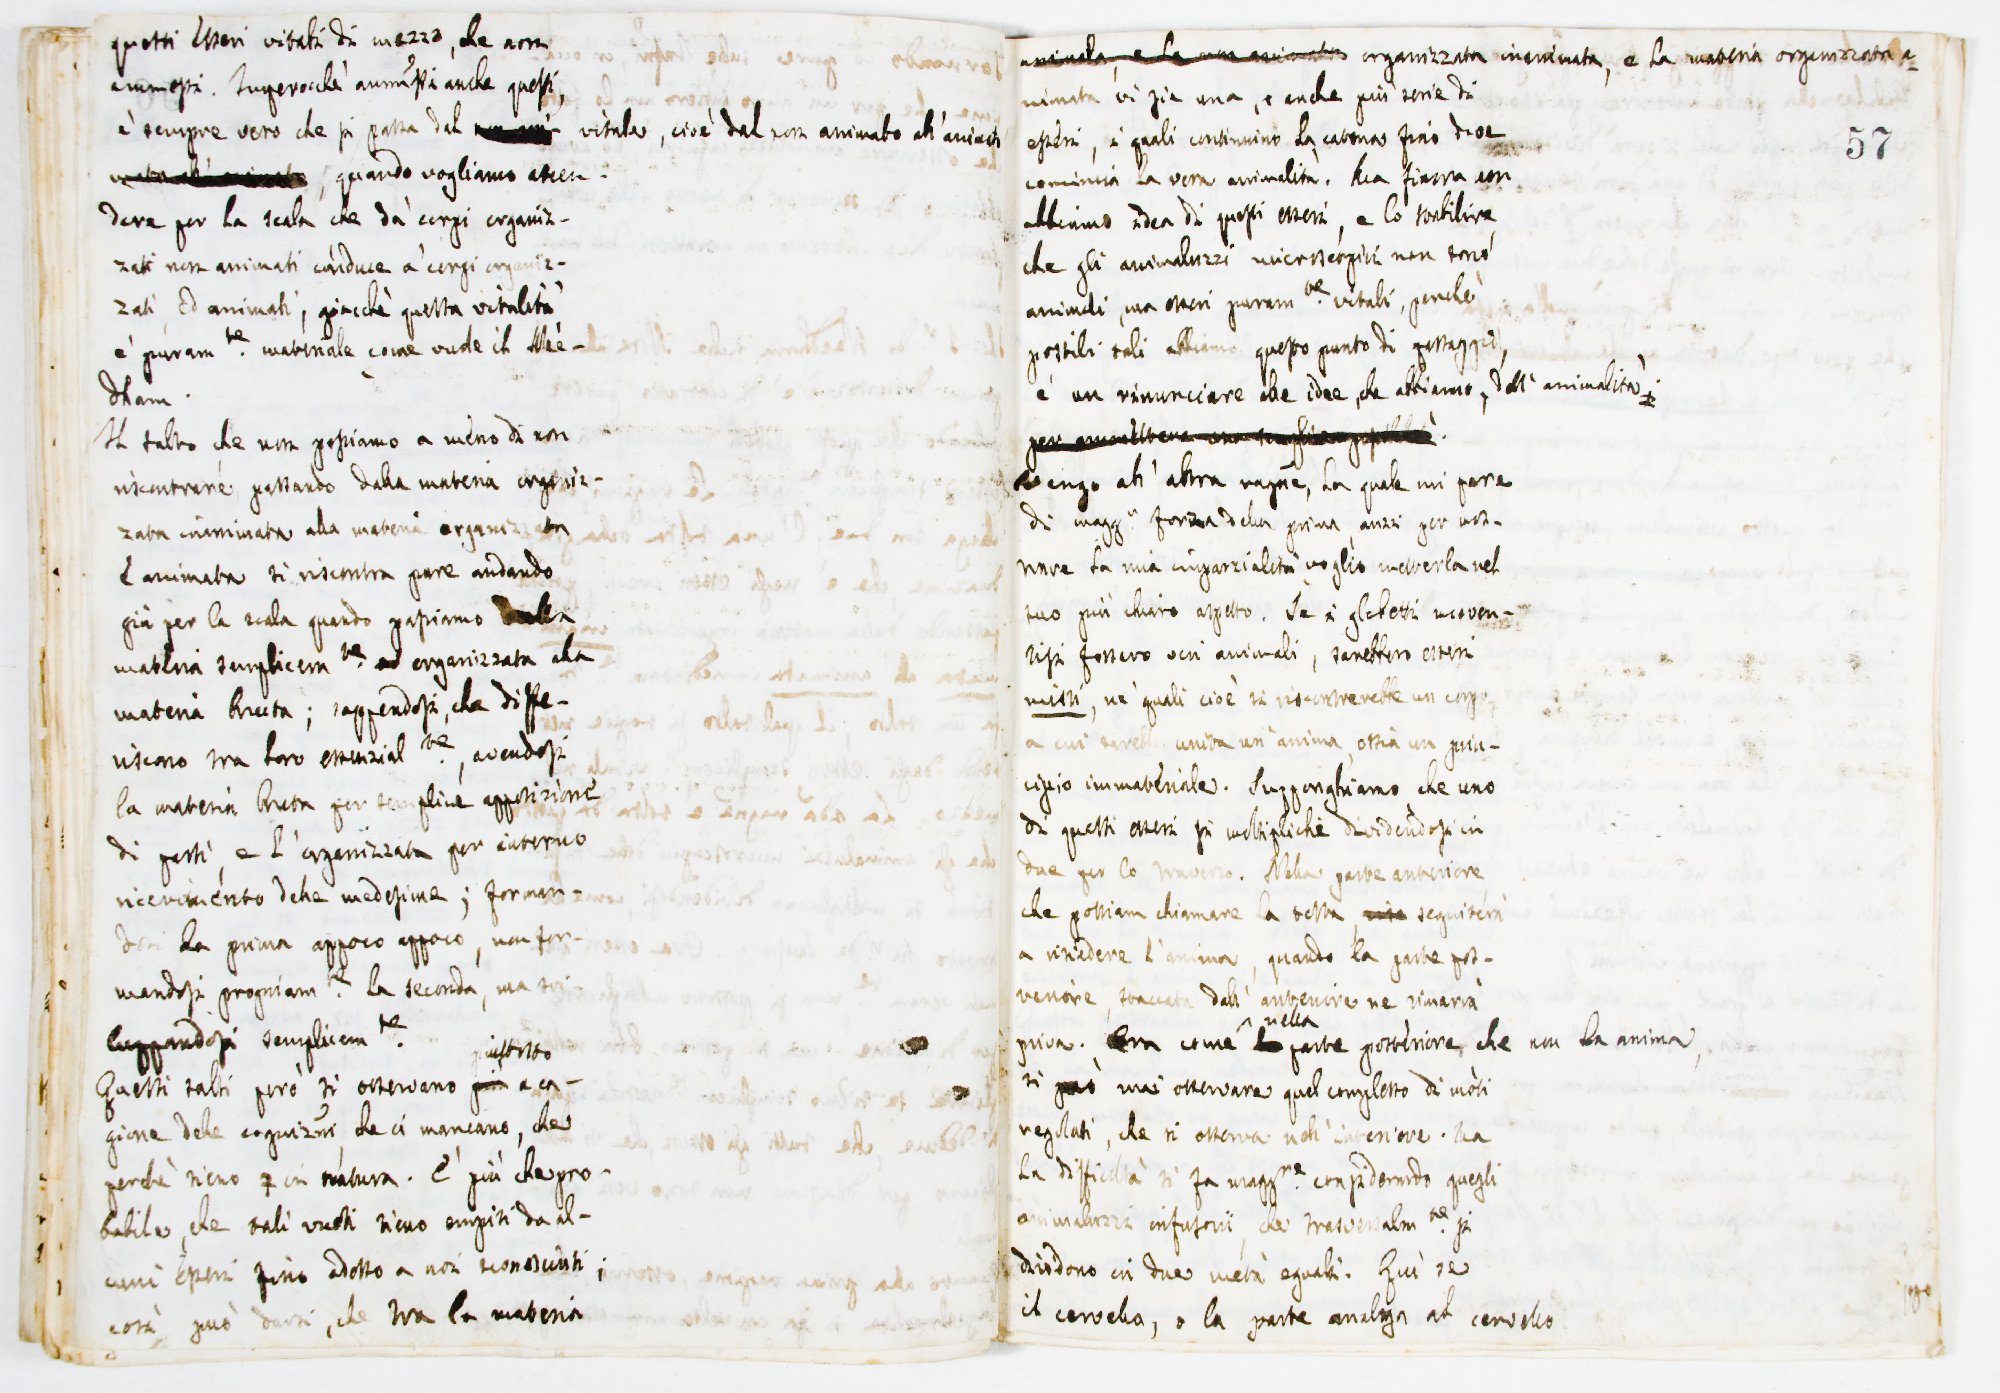 questi Esseri vitali di mezzo, che non
ammessi. Imperocchè ammessi anche questi,
è sempre vero che si passa dal vitale, cioè dal non animato all'animato
quando vogliamo ascen-
dere per la scala che da' corpi organiz-
zati non animati conduce a' corpi organiz-
zati ed animati, giacchè questa vitalità
è puram.te materiale come vuole il Née-
dham.
Il salto che non possiamo a meno di non
riscontrare passando dalla materia organiz-
zata inanimata alla materia organizzata
e animata si riscontra pure andando
giù per la scala quando passiamo dalla
materia semplicem.te organizzata alla
materia bruta; sappendosi, che diffe-
riscono tra loro essenzial.te, avendosi
la materia bruta per semplice apposizione
di parti, e l'organizzata per interno
ricevimento delle medesime; forman-
dosi la prima appoco appoco, non for-
mandosi propriam.te la seconda, ma svi-
luppandosi semplicem.te
piuttosto
Questi salti però si osservano a ca-
gione delle cognizni che ci mancano, che
perchè sieno in natura. E' più che pro-
babile, che tali vuoti sieno empiti da al-
cuni Esseri fino adesso a noi sconosciuti;
così può darsi, che tra la materia
organizzata inanimata, e la materia organizzata a-
nimata vi sia una, e anche più serie di
esseri, i quali continuino la catena fino dove
57
comincia la vera animalità. Ma finora non
abbiamo idea di questi esseri, e lo stabilire
che gli animaluzzi microscopici non sono
animali, ma esseri puram.te vitali, perchè
postili tali abbiamo questo punto di passaggio,
è un rinunciare alle idee, che abbiamo, dell'animalità
Vengo all'altra ragne, la quale mi pare
di magg.r forza della prima, anzi per mos-
trare la mia imparzialità voglio metterla nel
suo più chiaro aspetto. Se i globetti moven-
tisi fossero veri animali, sarebbero esseri
misti, ne' quali cioè si riscontrerebbe un corpo,
a cui sarebbe unita un'anima, ossia un prin-
cipio immateriale. Supponghiamo che uno
di questi esseri si moltiplichi dividendosi in
due per lo traverso. Nella parte anteriore,
che possiam chiamare la testa, seguiterà
a risiedere l'anima, quando la parte pos-
teriore, staccata dall'anteriore ne rimarrà
nella
priva. Ora come parte posteriore, che non ha anima,
si può mai osservare quel complesso di moti
regolati, che si osserva nell'anteriore. Ma
la difficoltà si fa magg.re considerando quegli
animaluzzi infusorii, che trasversalm.te si
dividono in due metà eguali. Quì se
il cervello, o la parte analoga al cervello